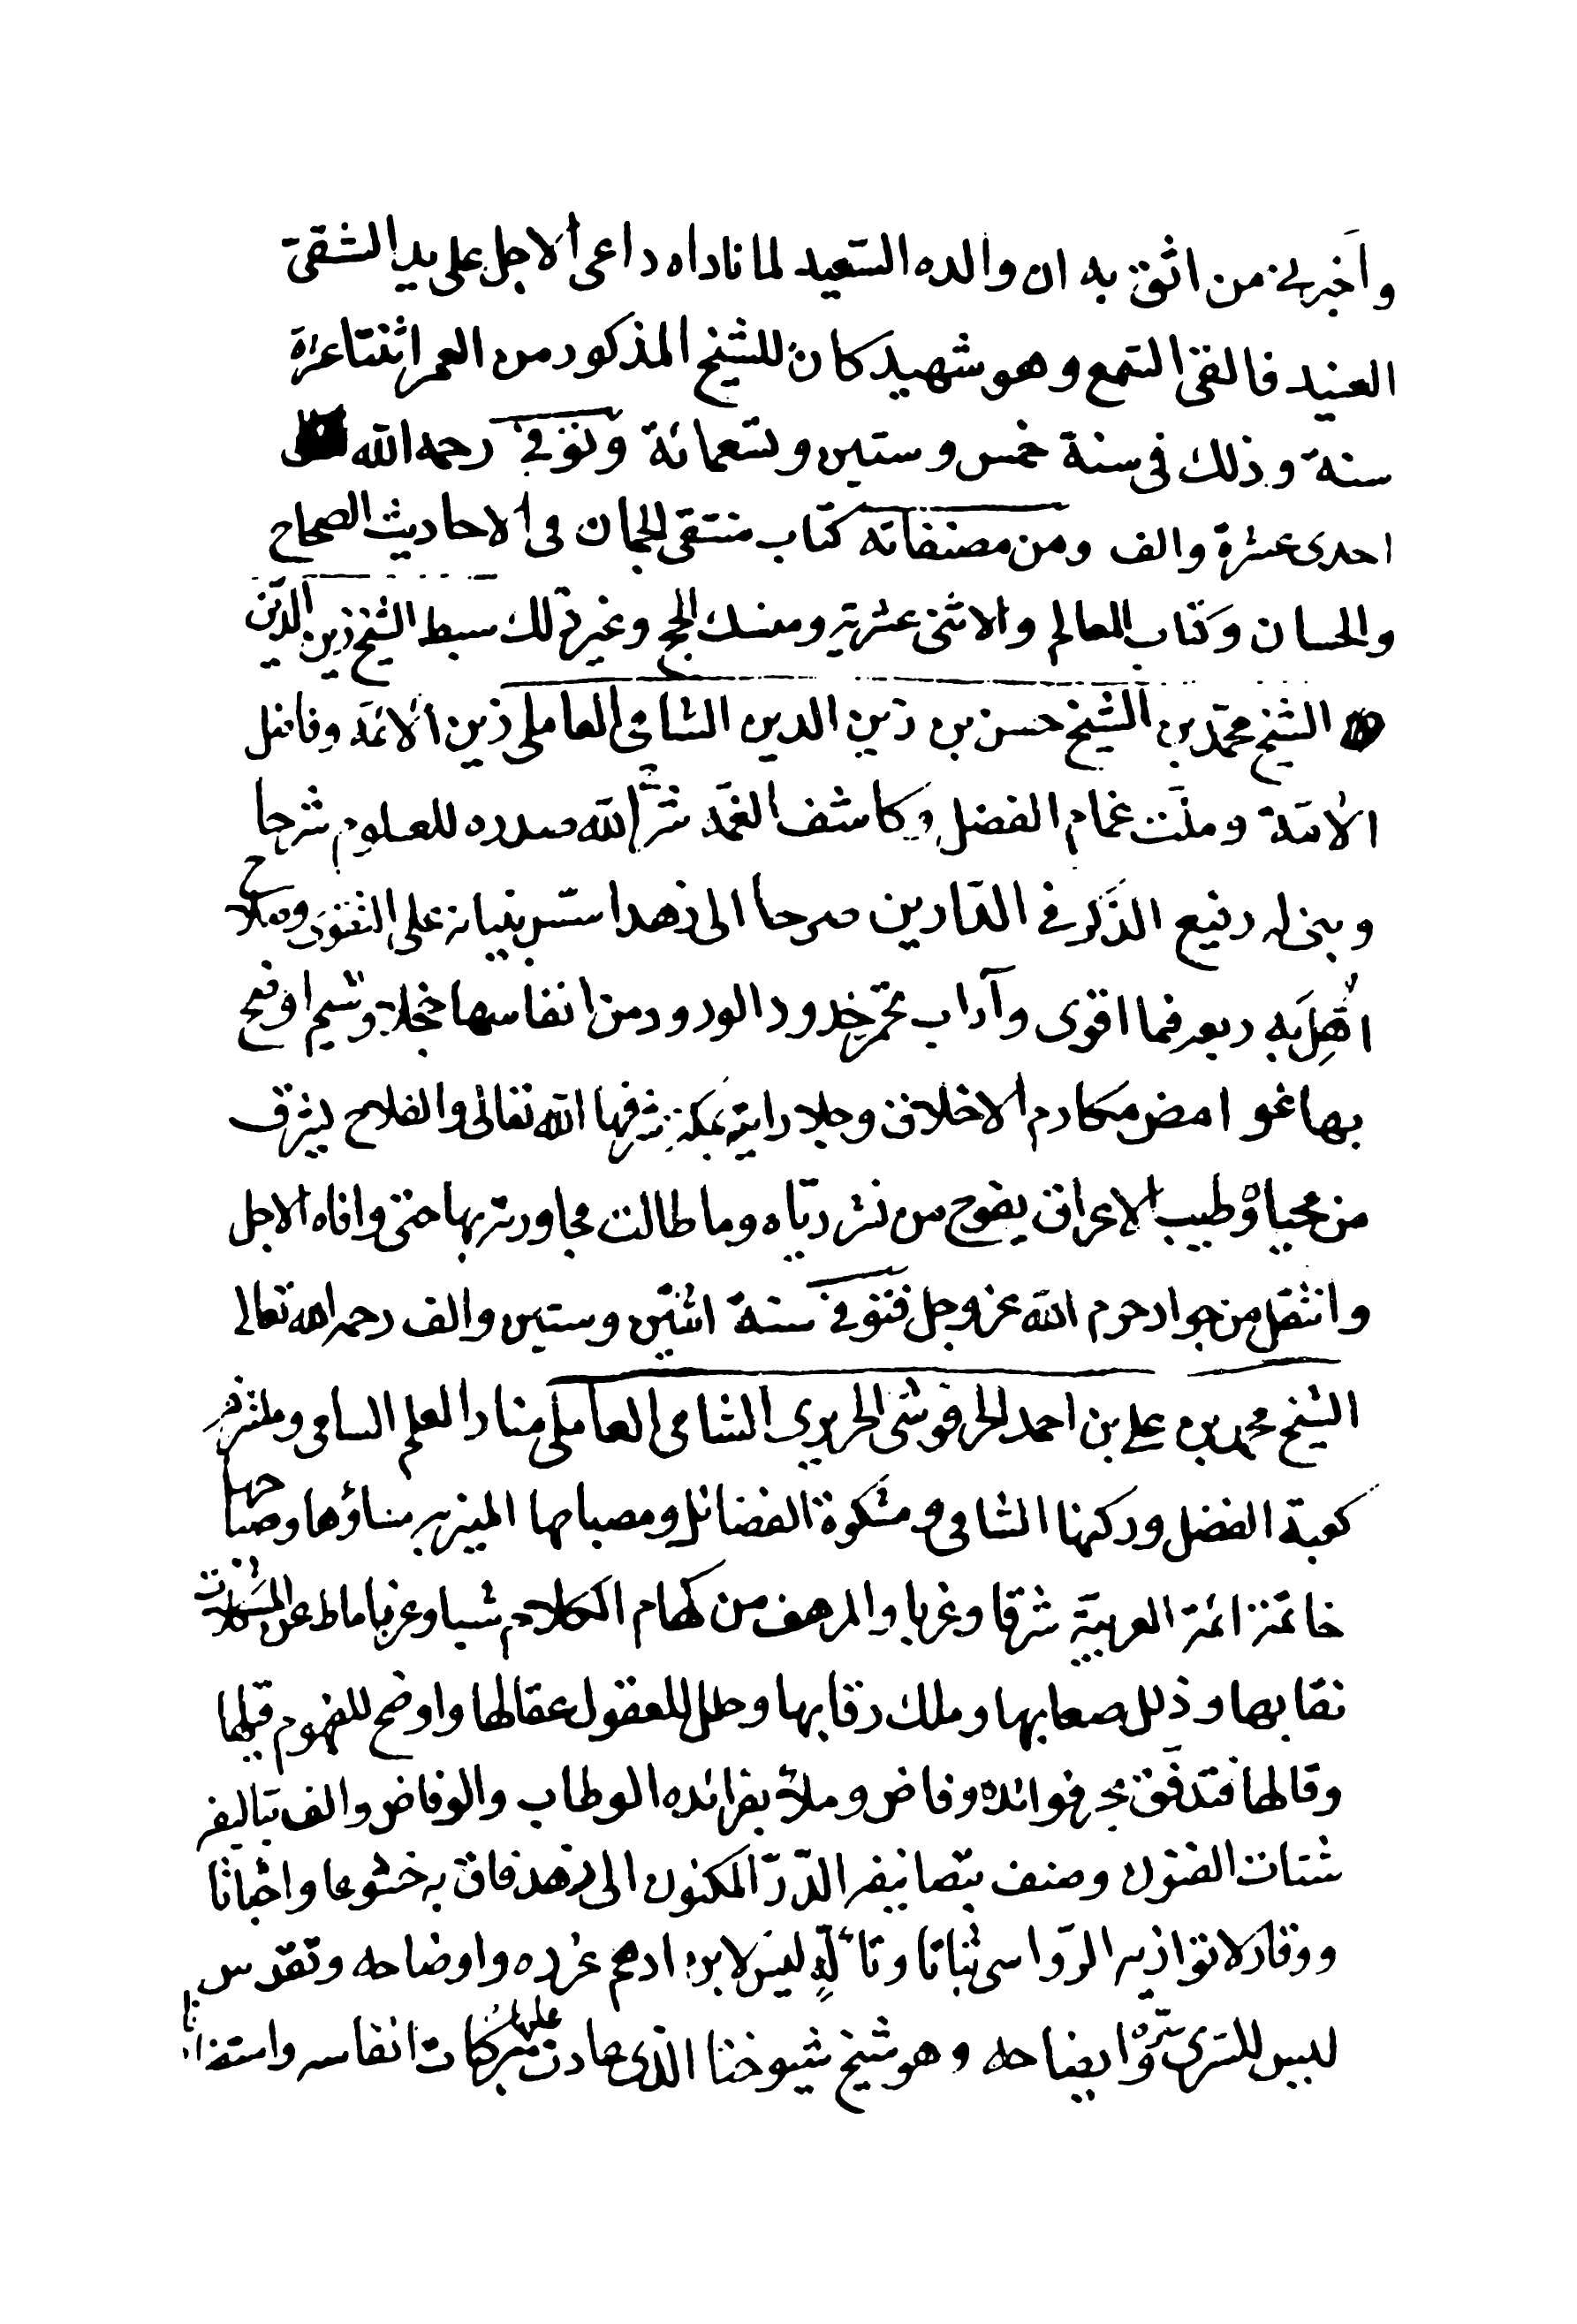 واخبرني من اثق به ان والده السّعيد لما ناداه داعى الاجل على يد الشقىّ
العنيد فالقى السّمع وهو شهيد كان للشيخ المذكور من العمر اثنتا عشرة
سنة وذلك فى سنة خمس وستين وتسعمائة وتوّفى رحمه الله
احدى عشرة والف ومن مصنفاته كتاب منتقى الجمان فى الاحاديث الصحاح
والحسان وكتاب المعالم والاثنى عشرية ومنسك الحج وغير ذلك سبط الشيخ زين الدّين
الشيخ محمّد بن الشيخ حسن بن زين الدين الشامى العاملى زين الائمّه وفاضل
الامّة وملّث غمام الفضل وكاشف الغمّه شرّح الله صدره للعلوم شرحا
وبنى له رفيع الذّكر فى الدّارين صرحا الى زهد اسّس بنيانه على التقوى وصلاح
اهل به ربعه فما اقوى وآداب تحمّر خدود الورود من انفاسها خجلا وشيم اوضح
بها غوامض مكارم الاخلاق وجلا رايته بمكة شرفها الله تعالى والفلاح يشرق
من محياه وطيب الاعراق يفوح من نشر ريّاه وما طالت مجاورته بها حتى وافاه الاجل
وانتقل من جوار حرم الله عز وجل فتوفى سنة اثنتين وستين والف رحمه الله تعالى
الشيخ محمد بن على بن احمد الحرفوشى الحريرى الشامى العاملى منار العلم السامى وملتزم
كعبة الفضل وركنها الشامى ومشكوة الفضائل ومصباحها المنير به مساؤها وصباحها
خاتمة ائمة العربيّة شرقا وغربا والمرهف من كهام الكلام شبا وغربا ماط عن المشكلات
نقابها وذلل صعابها وملك رقابها وحلل للعقول عقالها واوضح للفهوم قيلها
وقالها فتدفّق بحر فوائده وفاض وملأ بفرائده الوطاب والوفاض والف بتاليفه
شتات الفنون وصنف بتصانيفه الدّرّ المكنون الى زهد فاق به خشوعا واخباتا
ووقار لا توازيه الرّواسى ثباتا وتألّه ليس لابن ادهم غرره واوضاحه وتقدس
ليس للسّرى سرّه وايضاحه وهو شيخ شيوخنا الذى عادت علينا بركات انفاسه واستضأنا